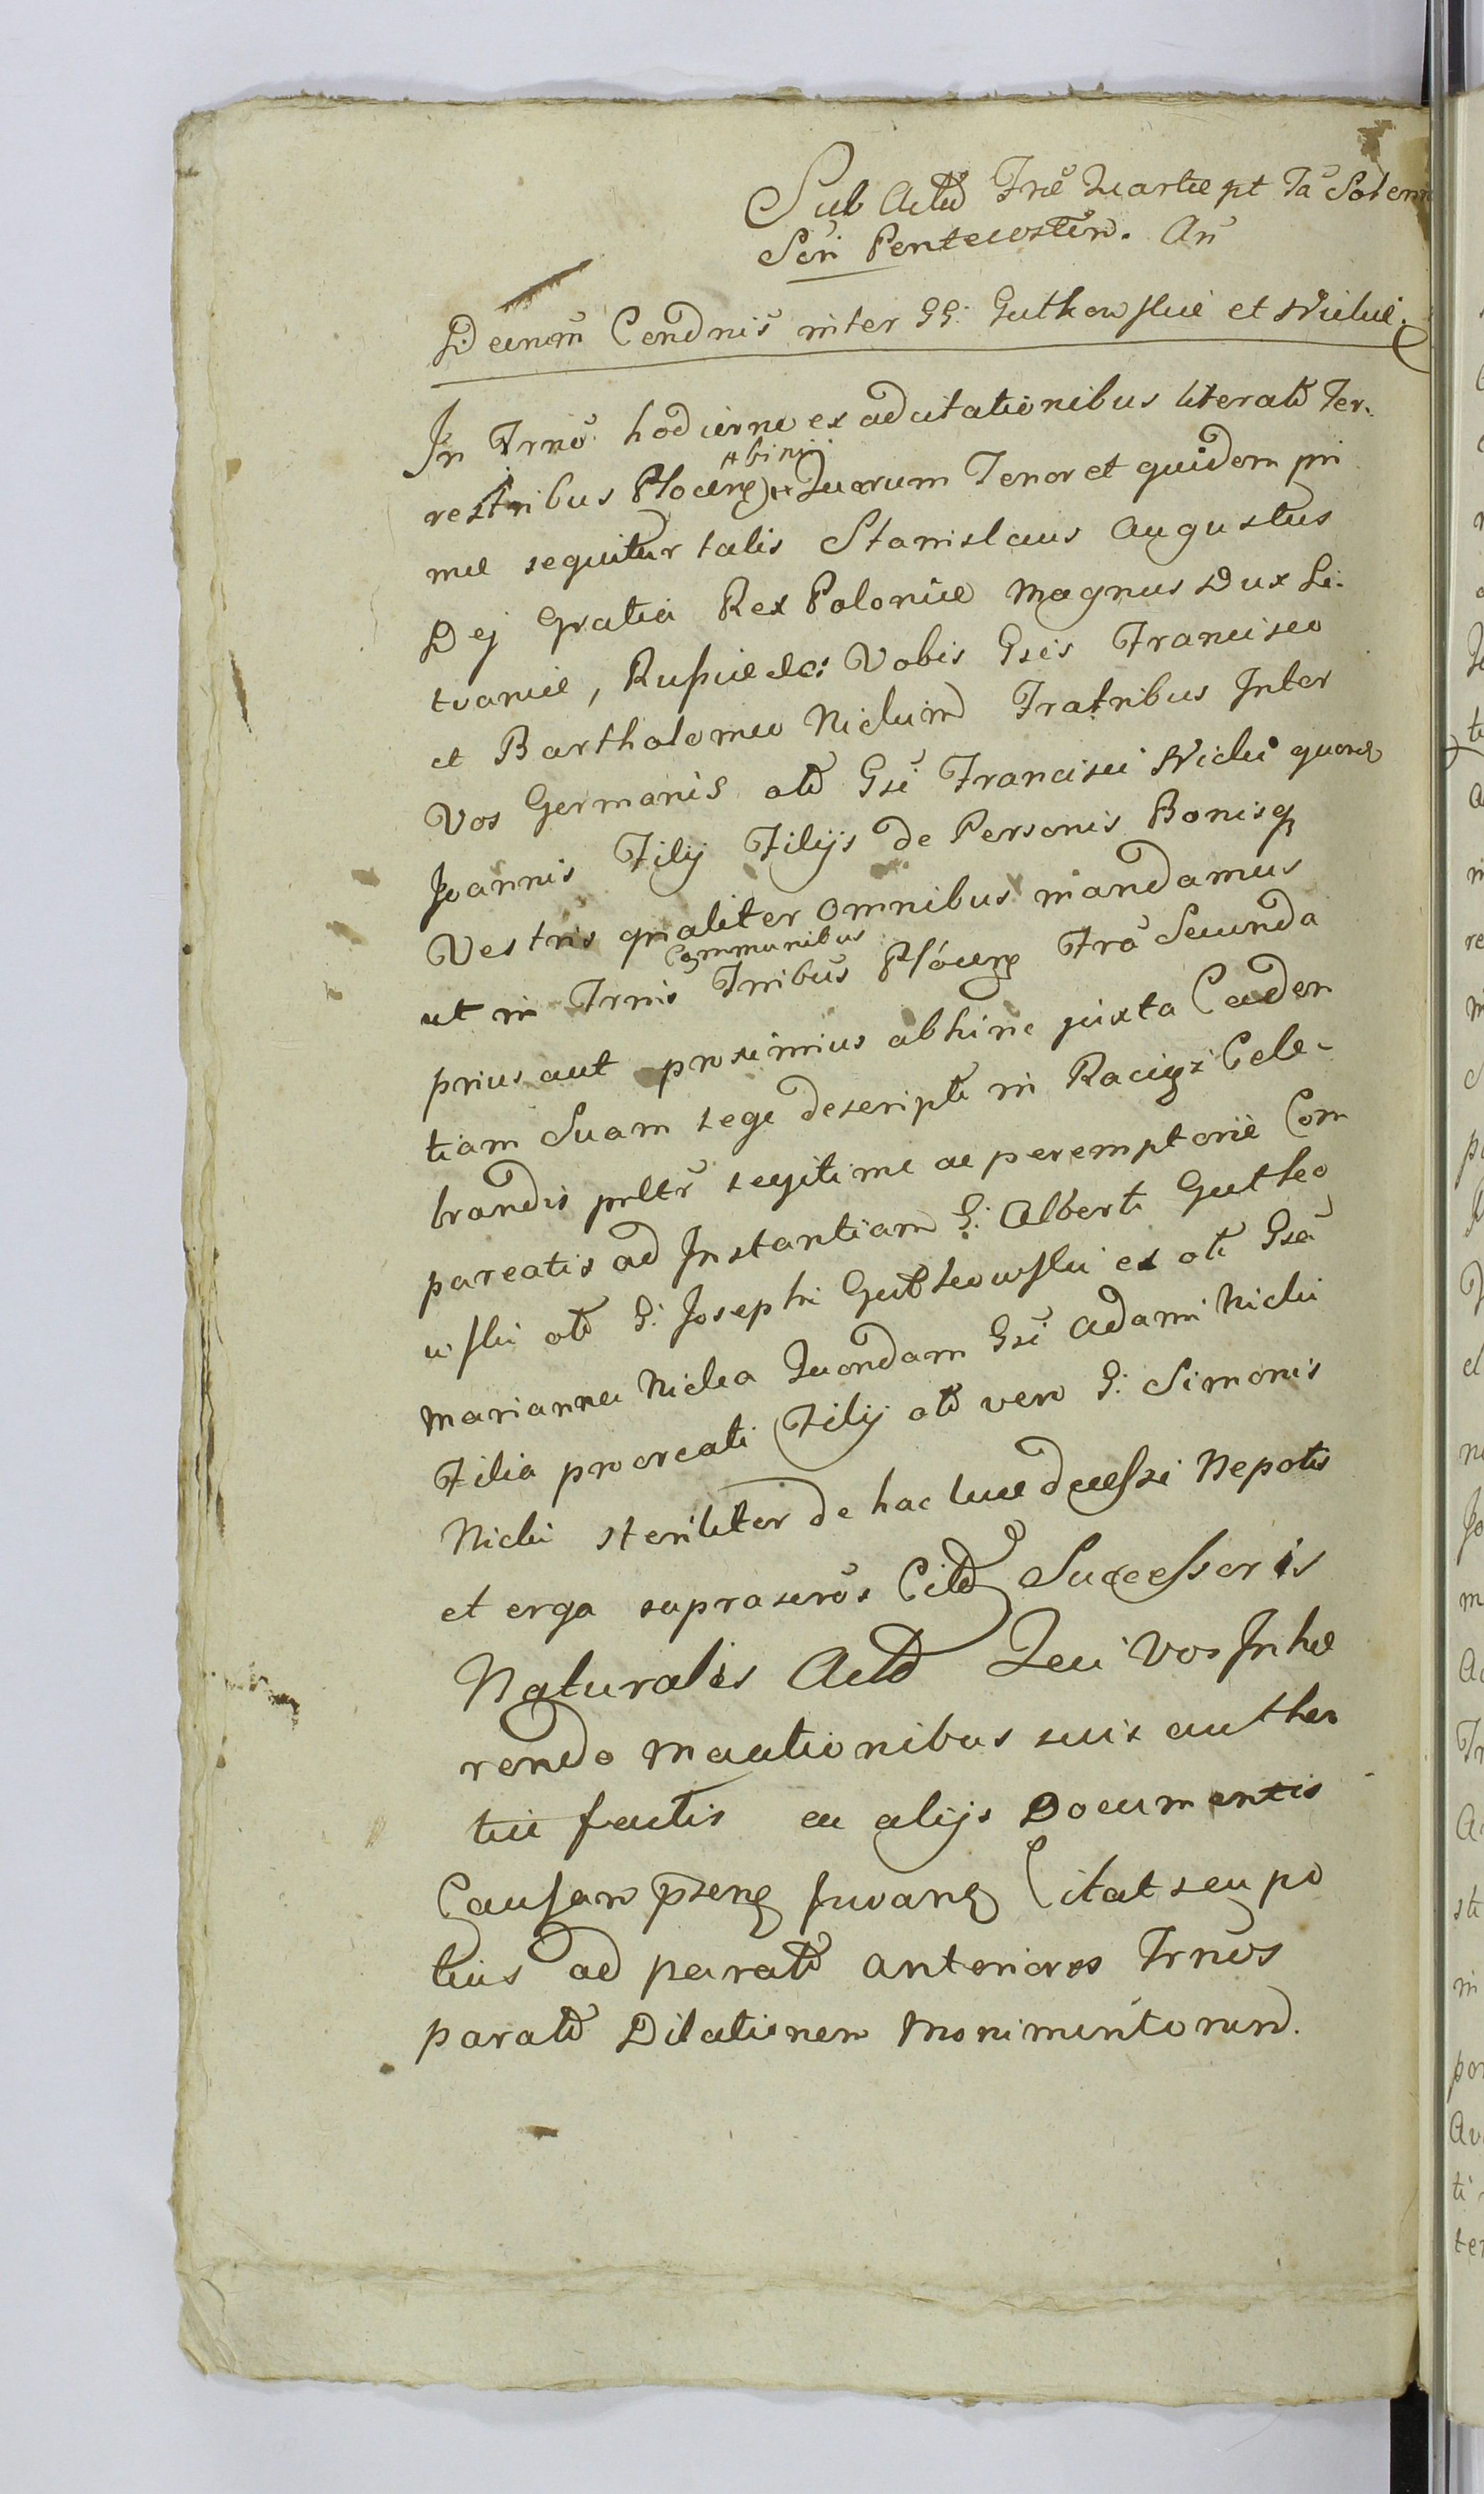 Sub Actũ Fræ Quartæ pt Fã Solem
Scn Pentecosten. An
Decrm Condnis inter GG: Gutkowskie et Nickie.
In Trno hodierno ex adcitationibus literatũ Ter-
restribus Plocen binis Quarum Tenor et quidem pri
mæ sequitur talis Stanislaus Augustus
Dej Gratia Rex Poloniæ Magnus Dux Li-
tvaniæ, Rußiæ etc: Vobis Gsis Francisco
et Bartholomeo Nickim Fratribus Inter
Vos Germanis otũ Gsi Francisci Nicki quond
Joannis Filij Filijs de Personis Bonisq
Vestris gnaliter omnibus mandamus
ut in Trnis Communibus Trribus Plócen Frã Secunda
prius aut proximius abhinc juxta Caden
tiam Suam lege descriptã in Raciąz Cele-
brandis psltr legitime ac peremptorie Com
pareatis ad Instantiam G: Alberti Gutko
wski otũ G: Josephi Gutkowski ex olĩ Gsã
Marianna Nicka Quondam Gsi Adami Nicki
Filia procreati Filij otũ vero G: Simonis
Nicki steriliter de hac luce deceßi Nepotis
et erga suprascrõs Citõ Succeßoris
Naturalis Actũ Qui Vos Inhæ
rendo Mautionibus suis authen
tice factis ea alijs Documentis
Causam psens juvan Citat seu po
tius ad paratũ anteriores Trnos
paratũ Dilationem Monimentorum.